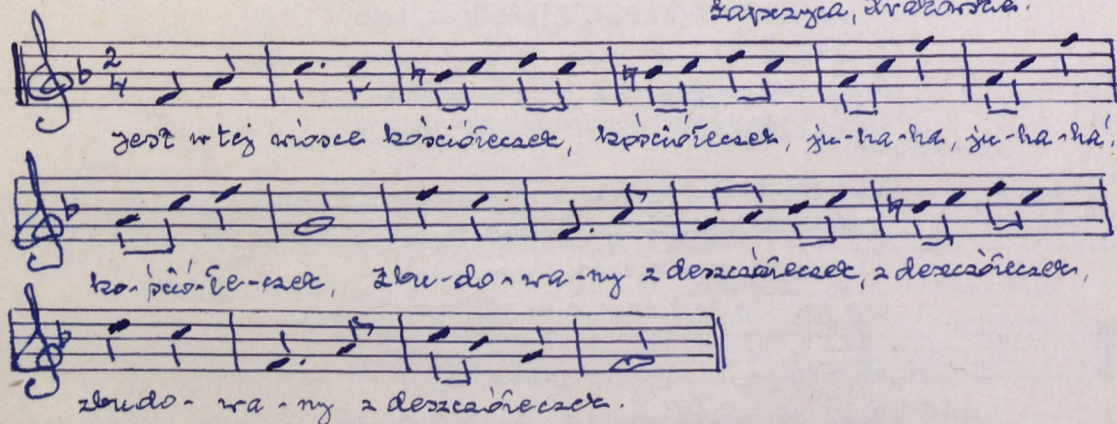 Łapczyca, Krakowskie.
2
4
Jest w tej wiosce kościółeczek, kościółeczek, ju-ha-ha, ju-ha-ha!
ko-śció-łe-czek, zbu-do-wa-ny z deszczółeczek, z deszczółeczek,
zbudo-wa-ny z deszczółeczek.